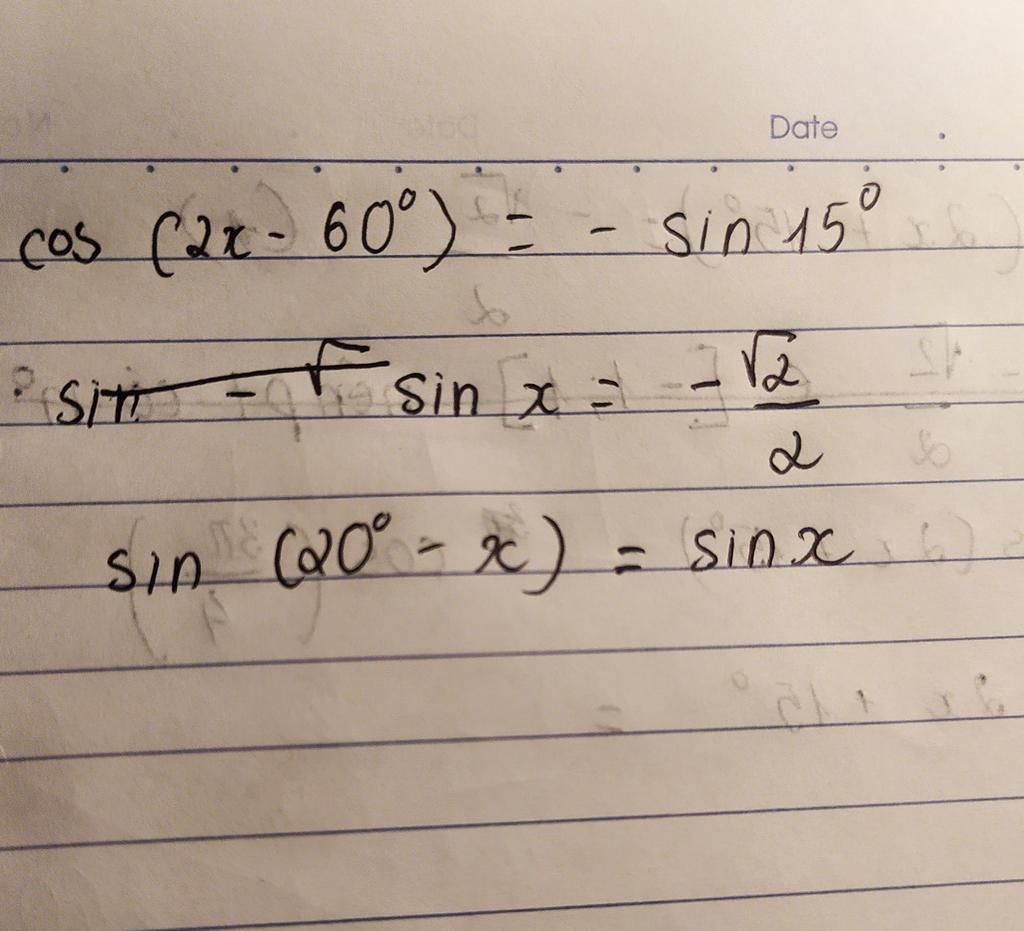 Date
cos (2x - 60°) = - sin 15°
sin x = - √2/2
sin (20° - x) = sin x